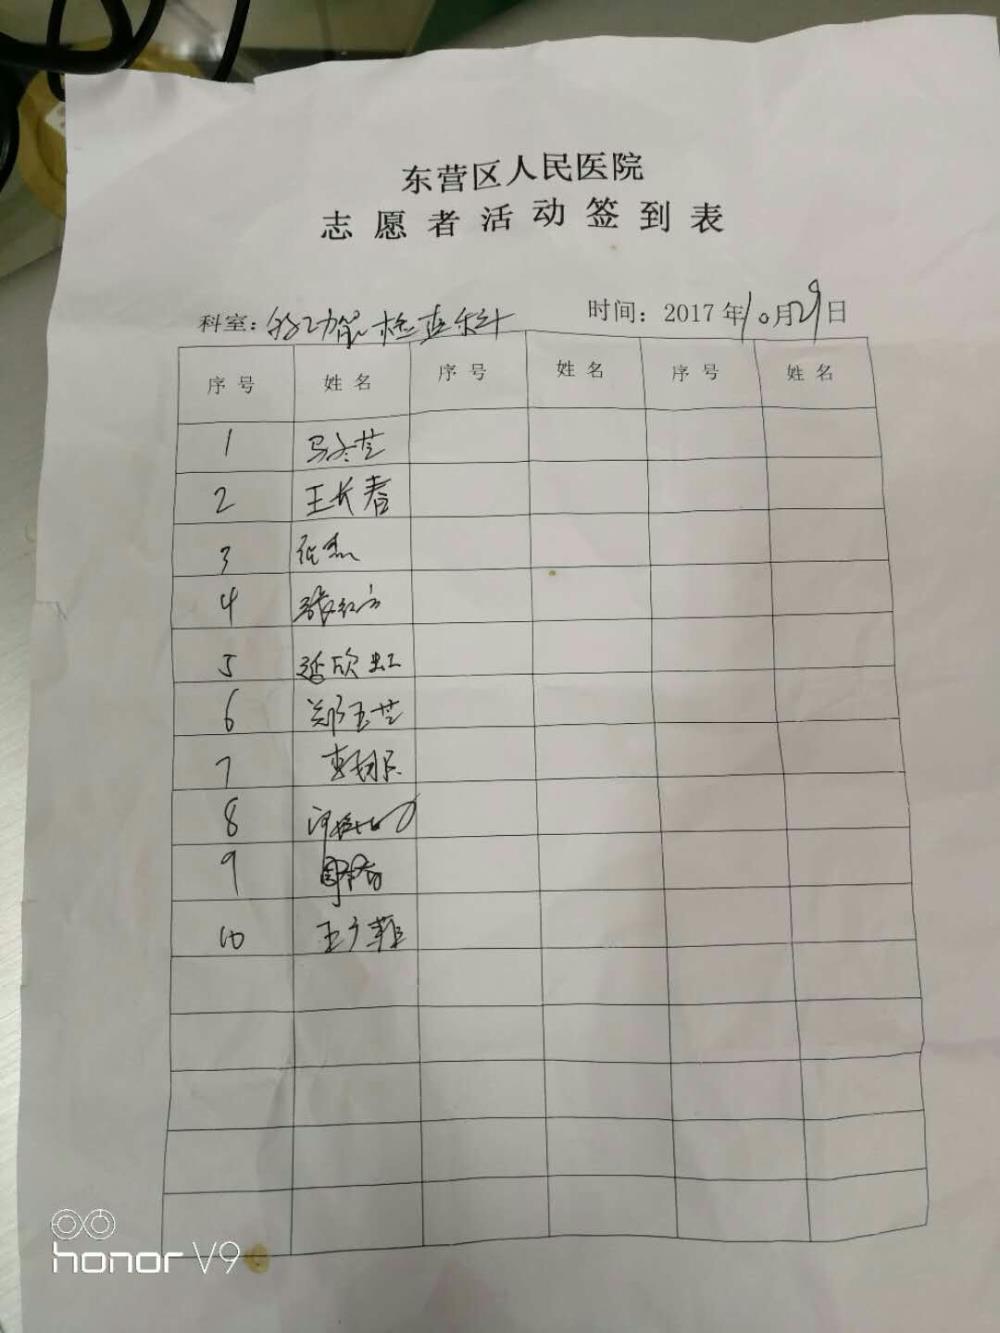 东营区人民医院
志愿者活动签到表
科室: 功能检查科 时间: 2017年10月29日
序号 姓名 序号 姓名 序号 姓名
1 马冬芝
2 王长春
3 张杰
4
5 欣虹
6 郑玉芝
7
8
9
10 王广菲
honor V9